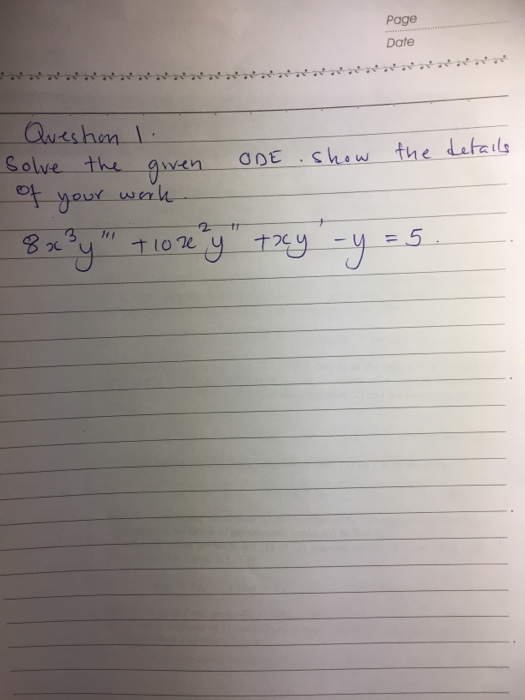 Page
Date
Question 1.
Solve the given ODE. show the details
of your work.
8x³y''' + 10x²y'' + xy' - y = 5.